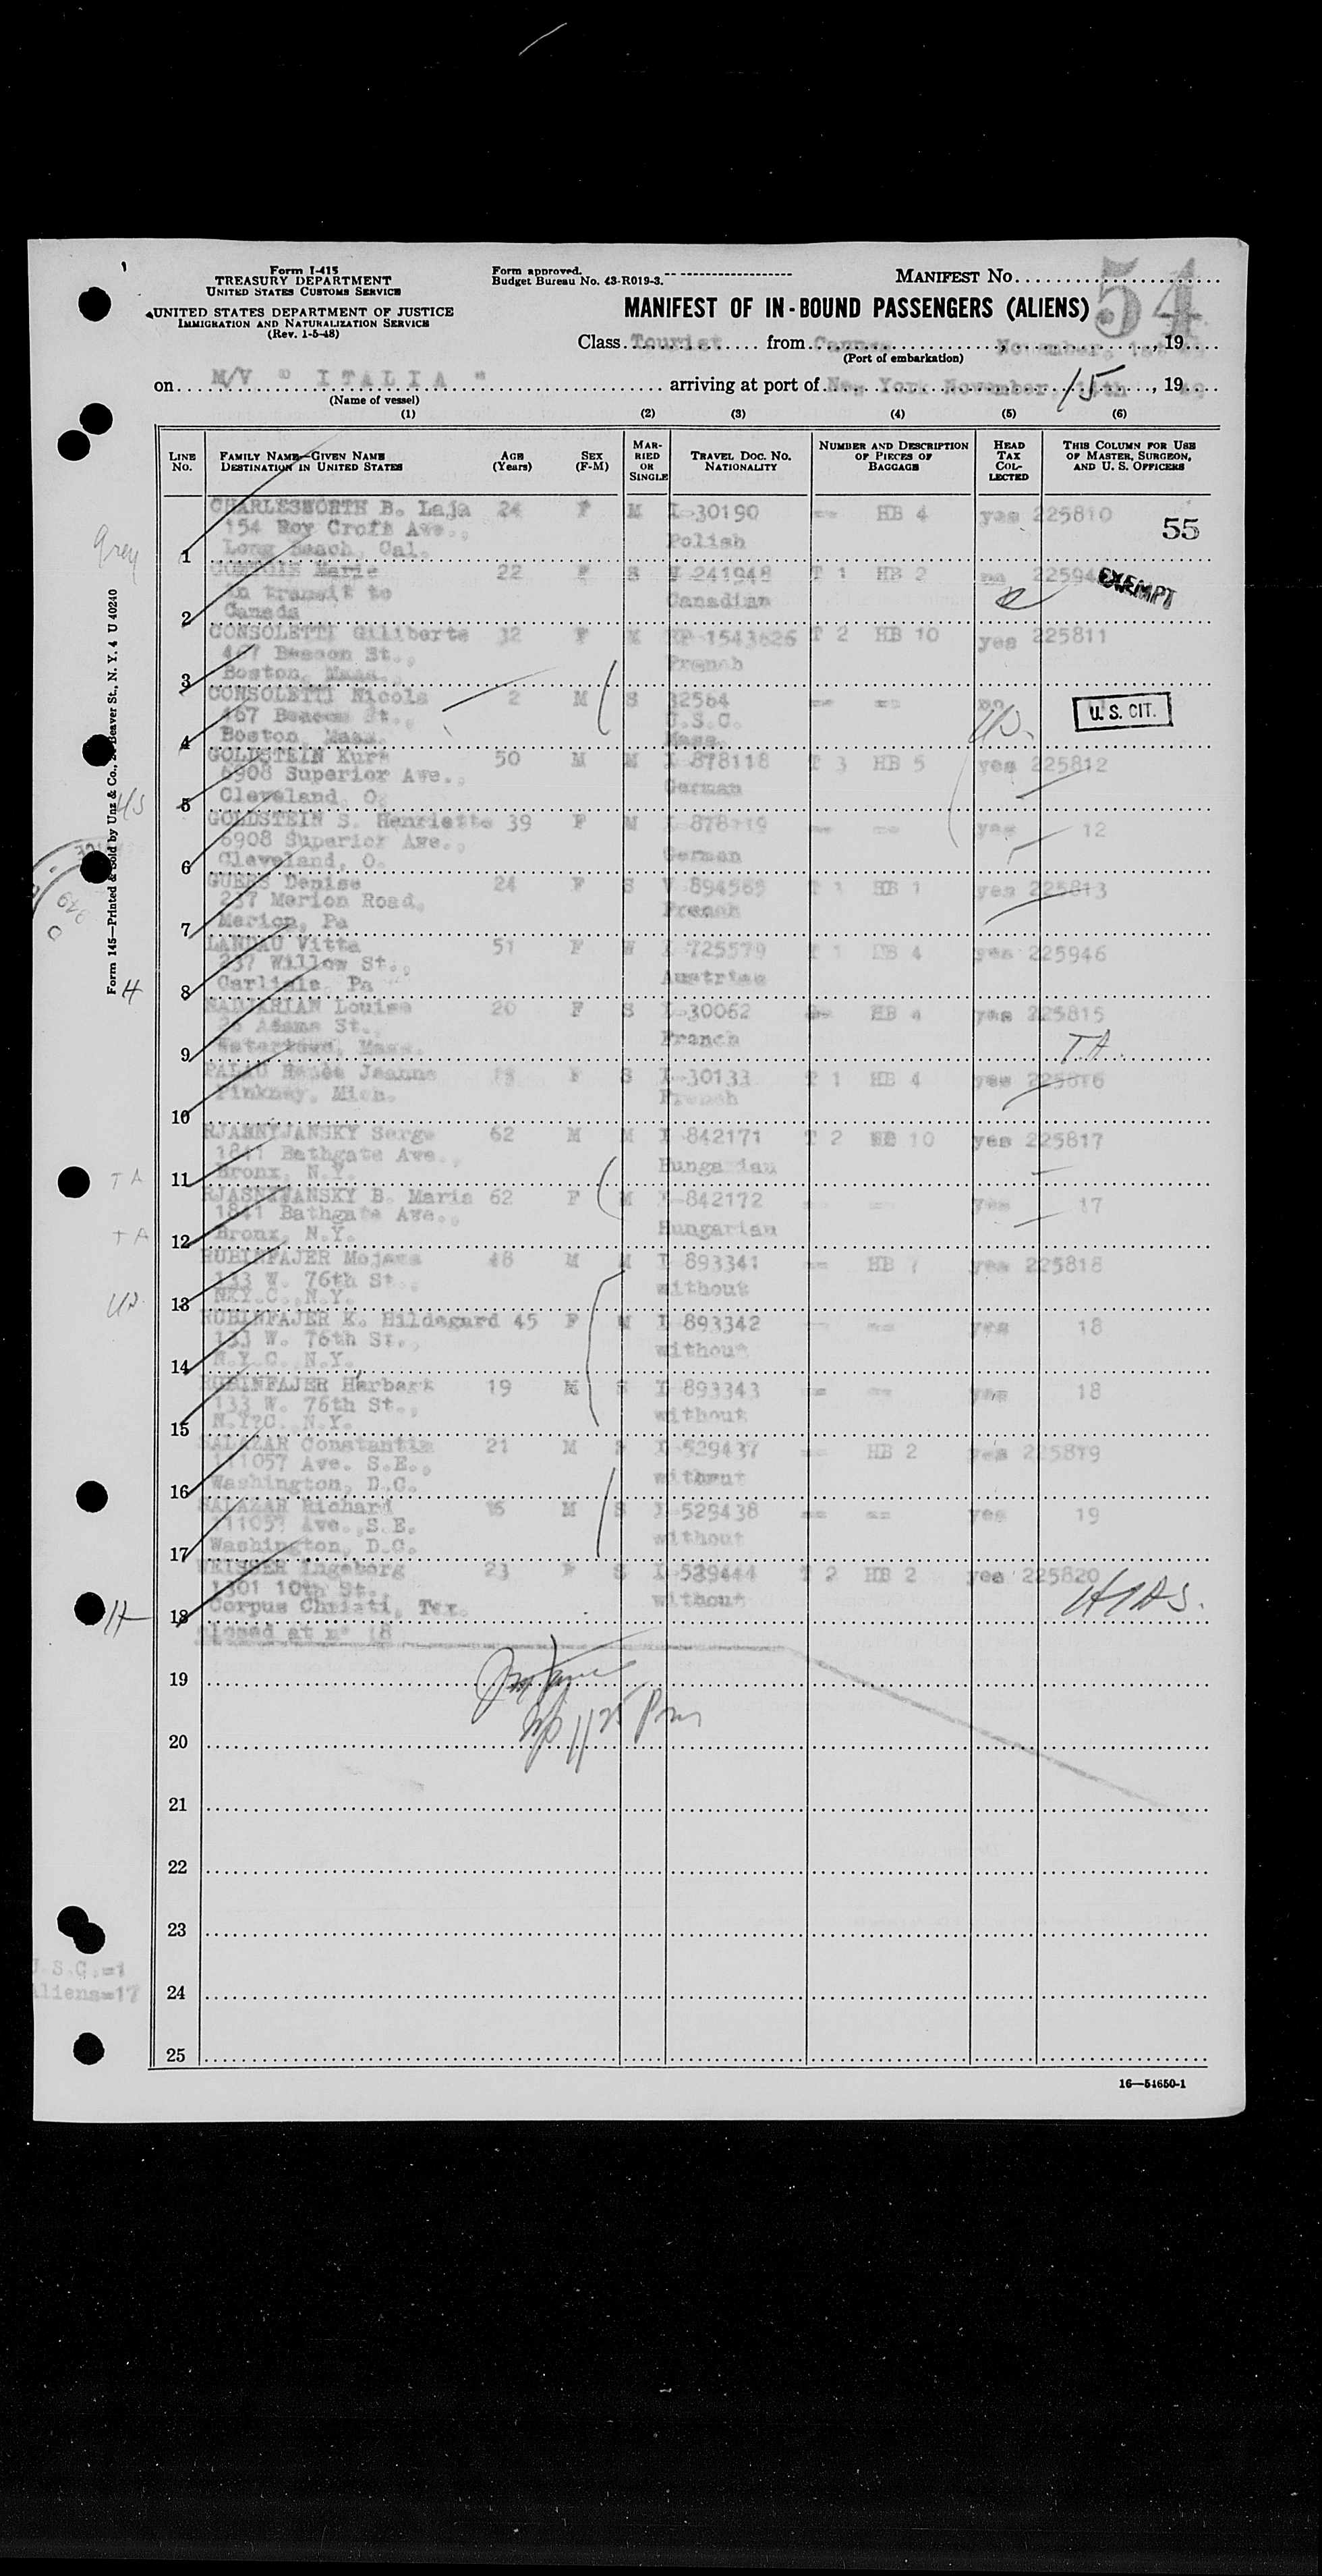 Form I-415
TREASURY DEPARTMENT
UNITED STATES CUSTOMS SERVICE
UNITED STATES DEPARTMENT OF JUSTICE
IMMIGRATION AND NATURALIZATION SERVICE
(Rev. 1-5-48)
Form approved.
Budget Bureau No. 43-R019-3.
MANIFEST No. 54
MANIFEST OF IN-BOUND PASSENGERS (ALIENS)
Class Tourist from Cannes, November, 1st, 19
(Port of embarkation)
on M/V " ITALIA " arriving at port of New York November, 15th, 19
(Name of vessel)
(1) (2) (3) (4) (5) (6)
LINE No. FAMILY NAME—GIVEN NAME DESTINATION IN UNITED STATES AGE (Years) SEX (F-M) MARRIED OR SINGLE TRAVEL DOC. NO. NATIONALITY NUMBER AND DESCRIPTION OF PIECES OF BAGGAGE HEAD TAX COLLECTED THIS COLUMN FOR USE OF MASTER, SURGEON, AND U. S. OFFICERS
CHARLESWORTH B. Laja 24 F M I-30190 -- HB 4 yes 225810
154 Roy Croft Ave., 55
1 Long Beach, Cal. Polish
Marie 22 F S 241948 T 1 HB 2 no EXEMPT
in transit to Canadian
2 Canada
CONSOLETTI Giliberte 32 F M 1543626 T 2 HB 10 yes 225811
467 Beacon St., French
3 Boston, Mass.
CONSOLETTI Nicola 2 M S 32564 -- -- no
467 Beacon St., U.S.C. U. S. CIT.
4 Boston, Mass. Mass.
GOLDSTEIN Kurt 50 M M I 878118 T 3 HB 5 yes 225812
6908 Superior Ave., German
5 Cleveland, O.
GOLDSTEIN S. Henriette 39 F M I 878119 -- -- yes 12
6908 Superior Ave.,
6 Cleveland, O. German
Denise 24 F S V 894565 T 1 HB 1 yes 225813
237 Merion Road, French
7 Merion, Pa
LANDAU Vitta 51 F W I 725579 T 1 HB 4 yes 225946
237 Willow St., Austrian
8 Carlisle, Pa
Louise 20 F S I-30062 -- HB 4 yes 225815
Adams St., French
9 Watertown, Mass. T.A.
Jeanne F S I-30133 T 1 HB 4 yes 225816
10 Pinkney, Mich. French
RJASNYJANSKY Serge 62 M M I 842171 T 2 HB 10 yes 225817
1841 Bathgate Ave.,
11 Bronx, N.Y. Hungarian
RJASNYJANSKY B. Maria 62 F M I-842172 -- -- yes 17
1841 Bathgate Ave.,
12 Bronx, N.Y. Hungarian
RUBINFAJER 48 M M I 893341 -- HB 7 yes 225818
133 W. 76th St., without
13 N.Y.
RUBINFAJER K. Hildegard 45 F M I 893342 -- -- yes 18
133 W. 76th St., without
14 N.Y.C. N.Y.
RUBINFAJER Herbert 19 M S I 893343 -- -- yes 18
133 W. 76th St., without
15 N.Y.
SALAZAR Constantin 21 M S I-529437 -- HB 2 yes 225819
111057 Ave. S.E., without
16 Washington, D.C.
SALAZAR Richard M S I-529438 -- -- yes 19
111057 Ave., S.E. without
17 Washington, D.C.
WEISSER Ingeborg 23 F S I-529444 T 2 HB 2 yes 225820
1301 10th St., without
18 Corpus Christi, Tex. HIAS.
Closed at n° 18
19
20
21
22
23
24
25
U.S.C.=1
Aliens=17
TA
TA
Form 145—Printed & Sold by Unz & Co., Beaver St., N. Y. 4 U 40240
16—54650-1